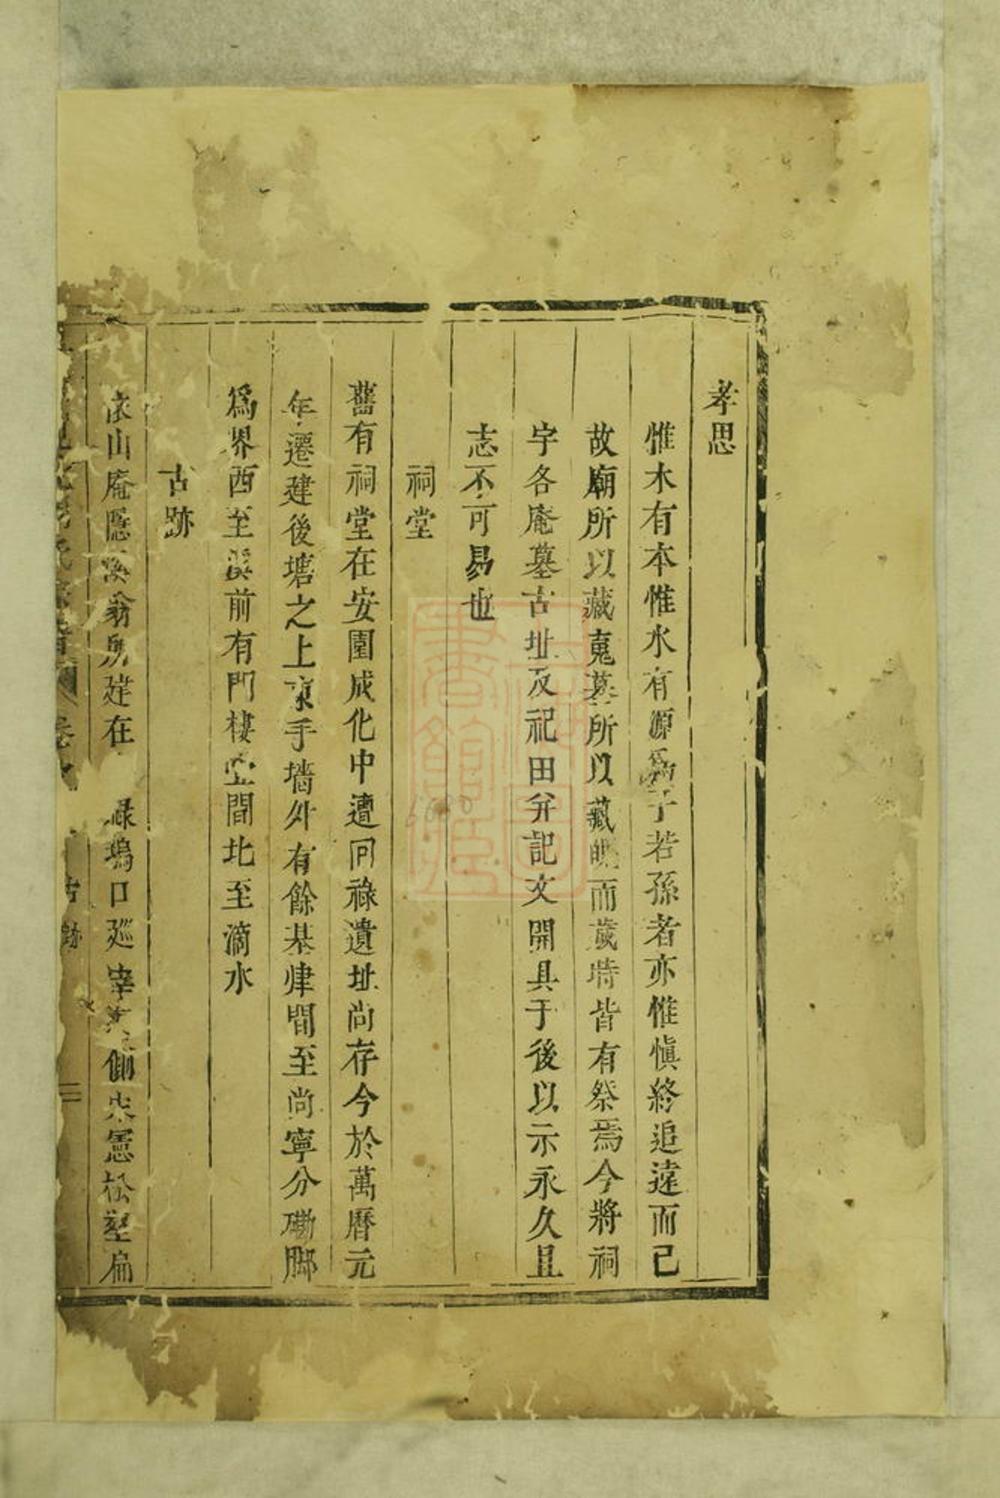 孝思
惟木有本惟水有源為子若孫者亦惟慎終追遠而已
故廟所以藏䰟墓所以藏魄而歲時皆有祭焉今將祠
宇各庵墓古址及祀田并記文開具于後以示永久且
志不可易也
祠堂
舊有祠堂在安園成化中遭回祿遺址尚存今於萬曆元
年遷建後塘之上東手墻外有餘基肂間至尚寧分磡脚
為界西至溪前有門樓間北至滴水
古跡
依山庵隱溪翁男建在 祿塢口廵宰側朱憲松壑扁
卷
古跡
二